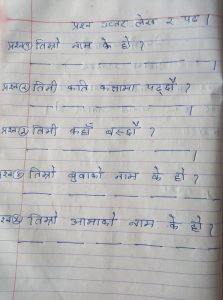 प्रश्न उत्तर लेख र पढ ।
प्रश्न(१) तिम्रो नाम के हो ?
।
प्रश्न(२) तिमी कति कक्षामा पढ्छौ ?
।
प्रश्न(३) तिमी कहाँ बस्छौ ?
।
प्रश्न(४) तिम्रो बुवाको नाम के हो ?
प्रश्न(५) तिम्रो आमाको नाम के हो ?